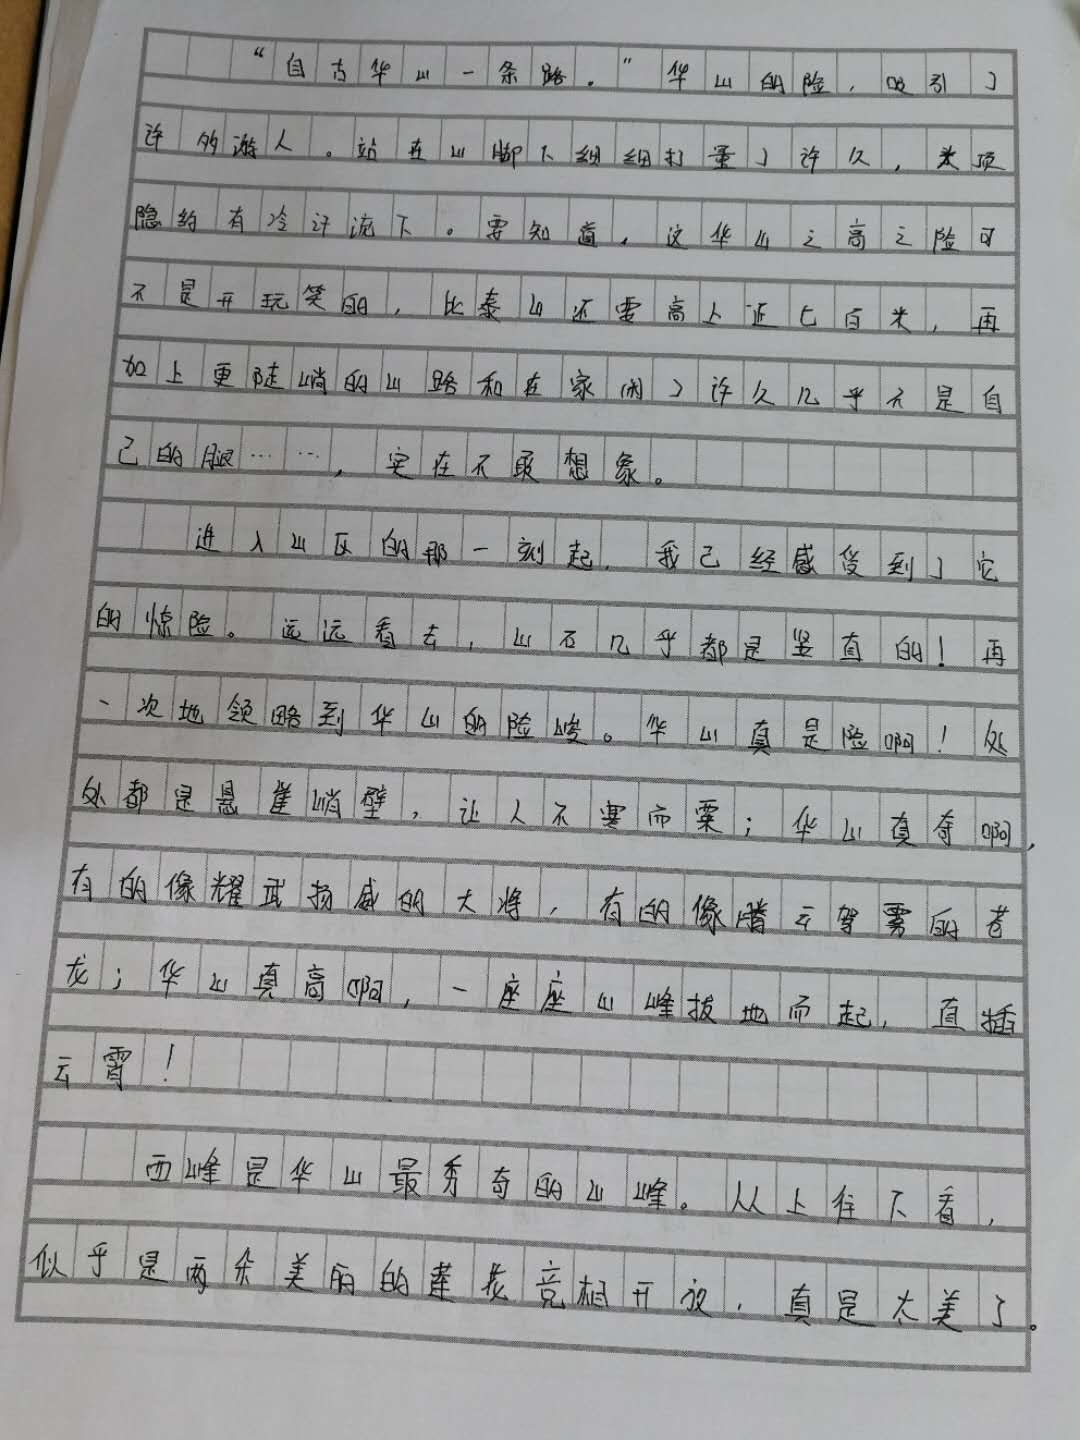 “自古华山一条路。”华山的险，吸引了
许多游人。站在山脚下细细打量了许久，头顶
隐约有冷汗流下。要知道，这华山之高之险可
不是开玩笑的，比泰山还要高上近七百米，再
加上更陡峭的山路和在家闲了许久几乎不是自
己的腿……，实在不敢想象。
进入山区的那一刻起，我已经感受到了它
的惊险。远远看去，山石几乎都是竖直的！再
一次地领略到华山的险峻。华山真是险啊！处
处都是悬崖峭壁，让人不寒而栗；华山真奇啊，
有的像耀武扬威的大将，有的像腾云驾雾的苍
龙；华山真高啊，一座座山峰拔地而起，直插
云霄！
西峰是华山最秀奇的山峰。从上往下看，
似乎是两朵美丽的莲花竞相开放，真是太美了。